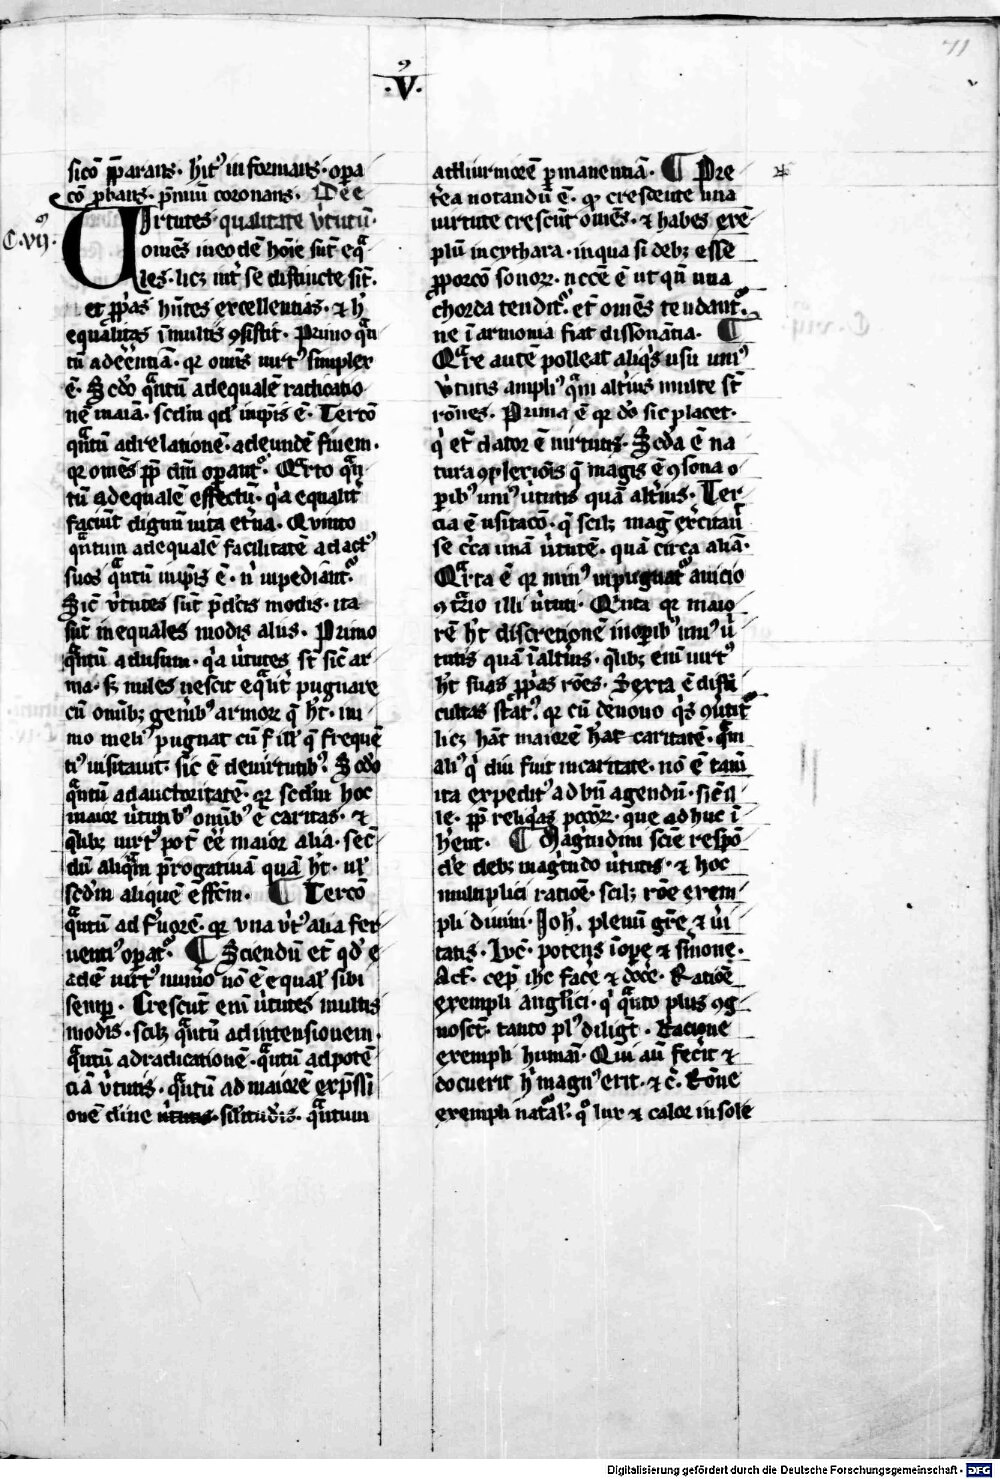 71
.V.
sicō p̄parans. hīt⁹ informans. oꝑa
cō ꝓbans. p̄miū coronans. De e
C.vij.
Uirtutes qualitate v̓tutū.
om̄s in eodē hoīe sūt eq̄
les. licꝫ int̓ se distincte sīt.
et ꝓp̓as hn̄tes excellentias. ⁊ h̓
equalitas ī multis ꝯsistit. Primo qn̄
tū ad eēntiā. qꝛ om̄is uirt⁹ simplex
ē. Scd̓o qn̄tū ad equalē radicatio
nē
Tercō
qn̄tū ad relationē. ad eundē finem.
qꝛ om̄es ꝓp̄ dm̄ oꝑant᷑. Qrto qn̄
tū ad equale effectū. q̓a equalit̓
faciūt dignū uita et̓na. Qvinto
qn̄tum ad equalē facilitatē ad act⁹
suos qn̄tū inip̄is ē. n̓ inpediant᷑.
Sic̄ v̓tutes sūt p̄dc̄is modis. ita
sūt inequales modis aliis. Primo
qn̄tū ad usum. q̓a u̓tutes st̄ sic̄ ar
ma. sꝫ miles nescit eq̄lit̓ pugnare
cū omībꝫ gen̓ibꝰ armoꝝ q̄ h̓t. im
mo meli⁹ pugnat cū ill̓ q̄ frequē
ti⁹ usitauit. sic̄ ē de uirtutibꝰ. Scd̓o
qn̄tū ad auctoritatē. qꝛ scd̄m hoc
maior u̓tutibꝰ omībꝰ ē caritas. ⁊
q̄libꝫ uirt⁹ pot̄ eē maior alia. sec̄
dū aliq̄m p̄rogatiuā quā h̓t. ul̓
scd̄m aliquē effc̄m. ¶ Tercō
qn̄tū ad f̓uorē. qꝛ vna v̓t⁹ alia fer
uenti⁹ oꝑat᷑. ¶ Sciendū et̄ qd̓ e
adē uirt⁹ num̓o nō ē equal̓ sibi
semꝑ. Crescūt eni u̓tutes multis
modis. scilꝫ qn̄tū ad intensionem.
qn̄tū ad radicationē. qn̄tū ad potē
ciā v̓tutis. qn̄tū ad maiorē exp̄ssi
onē diuīe silitud̓is. qn̄tum
ad diuturniorē ꝑmanentiā. ¶ Pre
t̓ea notandū ē. ꝙ crescente una
uirtute crescūt om̄es. ⁊ habes exē
plū in cythara. in qua si debꝫ esse
ꝓporcō sonoꝝ. nccē ē ut qn̄ una
chorda tendit᷑. et̄ om̄es tendant᷑.
ne ī armonia fiat dissonātia. ¶
Qre autē polleat aliq̓s usu uni⁹
v̓tutis ampli⁹ q̄m alt̓ius multe st̄
rōnes. Prima ē qꝛ dō sic placet.
q̓ et̄ dator ē uirtutis. Scd̓a ē na
tura
ꝑibꝰ uni⁹ u̓tutis quā alt̓ius. Ter
cia ē usitacō. q̄ scilꝫ mag̓ ex̓citau̓
se c̓ca unā u̓tutē. quā circa aliā.
Qrta ē qꝛ min⁹ inpugnat᷑ a uicio
ꝯt̓rio illi u̓tuti. Qinta qꝛ maio
rē h̓t discretionē in oꝑibꝰ uni⁹ u̓
tutis quā ī alt̓ius. q̄libꝫ eni uirt⁹
h̓t suas ꝓp̓as rōes. Sexta ē diffi
cultas
licꝫ hāt maiorē h̓at caritatē. q̄m
ali⁹ q̓ diu fuit in caritate. nō ē tam̄
ita expedit⁹ ad bn̄ agendū.
ꝓp̄ reliq̓as pcc̄oꝝ. que adhuc ī
h̓ent. ¶ Magnitudini scīe respō
de̓ debꝫ magn̓tudo u̓tutis. ⁊ hoc
multiplici ratiōe. scilꝫ rōe exem
pli diuini. Joh̓. plenū gr̄e ⁊ u̓i
tatis. Luc̄. potens ī oꝑe ⁊ s̓mone.
Act̄. cep̄ ih̄c face̓ ⁊ doc̓e. Ratiōe
exempli angl̓ici. q̓ q̄nto plus ꝯg
noscūt. tanto pl⁹ diligūt. Racione
exempli humāi. Qui aū fec̓it ⁊
docuerit h̓ magn⁹ erit. ⁊ c̄. Rōne
exempli nat̓al̓. q̓ lux ⁊ calor in sole